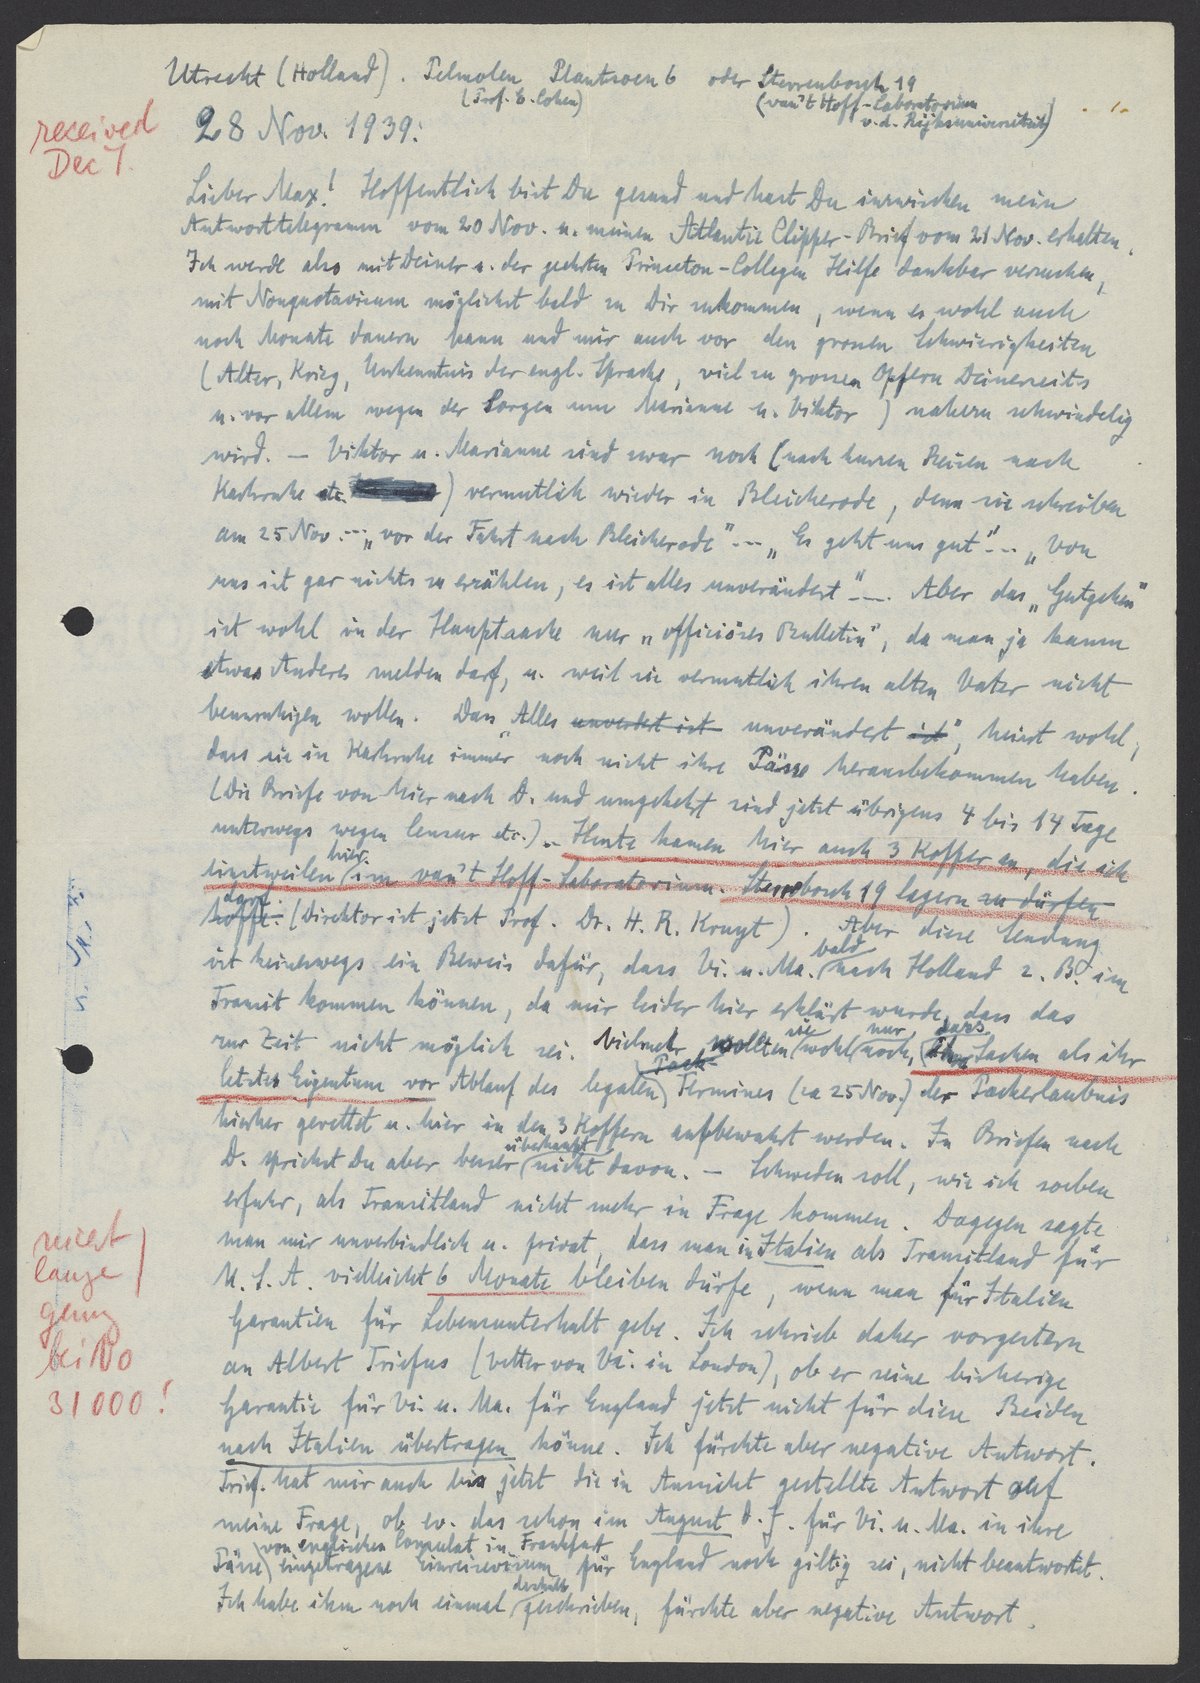 Utrecht (Holland). Telmolen Plantsoen 6 oder Sterrenbosch 19
(Prof. E. Cohen) (van't Hoff-Laboratorium
v.d. Rijksuniversiteit)
received
Dec 7.
28 Nov. 1939:
Lieber Max! Hoffentlich bist Du gesund und hast Du inzwischen mein
Antworttelegramm vom 20 Nov. u. meinen Atlantic Clipper-Brief vom 21 Nov. erhalten.
Ich werde also mit Deiner u. der geehrten Princeton-Collegen Hilfe dankbar versuchen,
mit Nonquotavisum möglichst bald zu Dir zukommen, wenn es wohl auch
noch Monate dauern kann und mir auch vor den grossen Schwierigkeiten
(Alter, Krieg, Unkenntnis der engl. Sprache, viel zu grossen Opfern Deinerseits
u. vor allem wegen der Sorgen um Marianne u. Viktor) nahezu schwindelig
wird. — Viktor u. Marianne sind zwar noch (nach kurzen Reisen nach
Karlsruhe etc.) vermutlich wieder in Bleicherode, denn sie schreiben
am 25 Nov. --- „vor der Fahrt nach Bleicherode" --- „Es geht uns gut" --- „Von
uns ist gar nichts zu erzählen, es ist alles unverändert" ---. Aber das „Gutgehen"
ist wohl in der Hauptsache nur „officiöses Bulletin", da man ja kaum
etwas Anderes melden darf, u. weil sie vermutlich ihren alten Vater nicht
beunruhigen wollen. Dass Alles unverändert ist", heisst wohl,
dass sie in Karlsruhe immer noch nicht ihre Pässe herausbekommen haben.
(Die Briefe von hier nach D. und umgekehrt sind jetzt übrigens 4 bis 14 Tage
unterwegs wegen Censur etc.) – Heute kamen hier auch 3 Koffer an, die ich
einstweilen hier im van't Hoff-Laboratorium. Sterrebosch 19 lagern zu dürfen
hoffe. darf (Direktor ist jetzt Prof. Dr. H. R. Kruyt). Aber diese Sendung
ist keineswegs ein Beweis dafür, dass Vi. u. Ma. bald nach Holland z. B. im
Transit kommen können, da mir leider hier erklärt wurde, dass das
zur Zeit nicht möglich sei. Vielmehr wollten sie wohl nur noch, dass Sachen als ihr
letztes Eigentum vor Ablauf des legalen Pack- Termines (ca 25 Nov.) der Packerlaubnis
hierher gerettet u. hier in den 3 Koffern aufbewahrt werden. In Briefen nach
D. sprichst Du aber besser überhaupt nicht davon. — Schweden soll, wie ich soeben
erfuhr, als Transitland nicht mehr in Frage kommen. Dagegen sagte
man mir unverbindlich u. privat, dass man in Italien als Transitland für
U. S. A. vielleicht 6 Monate bleiben dürfe, wenn man für Italien
Garantien für Lebensunterhalt gebe. Ich schrieb daher vorgestern
nicht
lange
genug
bei No
31000!
an Albert Triefus (Vetter von Vi. in London), ob er seine bisherige
Garantie für Vi. u. Ma. für England jetzt nicht für diese Beiden
nach Italien übertragen könne. Ich fürchte aber negative Antwort.
Trief. hat mir auch bis jetzt die in Aussicht gestellte Antwort auf
meine Frage, ob ev. das schon im August d. J. für Vi. u. Ma. in ihre
Pässe vom englischen Consulat in Frankfurt eingetragene Einreisevisum für England noch giltig sei, nicht beantwortet.
Ich habe ihm noch einmal deshalb geschrieben, fürchte aber negative Antwort.